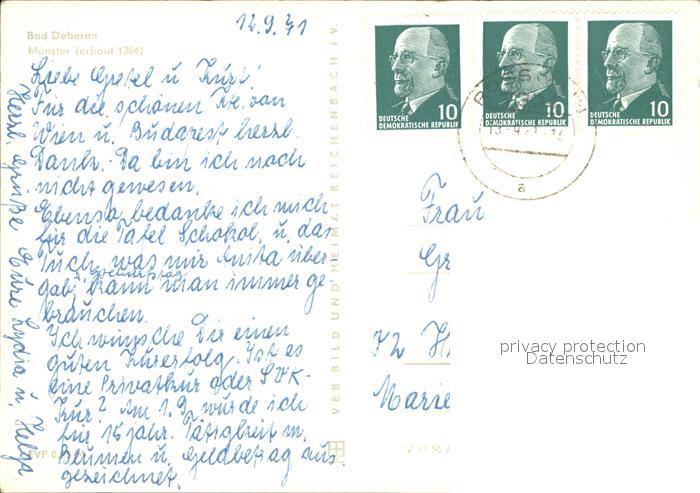 12.9.71
Bad Doberan
Münster (erbaut 1386)
Liebe Gretel u. Kurt!
Für die schönen Kt. von
Wien u. Budapest herzl.
Dank. Da bin ich noch
nicht gewesen.
Ebenso bedanke ich mich
für die Tafel Schokol. u. das
Tuch, was mir Anita über-
gab, kann man immer ge-
brauchen.
Ich wünsche Dir einen
guten Kurerfolg. Ist es
eine Privatkur oder SVK-
Kur? Am 1.9. wurde ich
für 15 jähr. Tätigkeit m.
Blumen u. Geldbetrag aus-
gezeichnet.
Herzl. Grüße Eure Lydia u. Helga
EVP 0,
VEB BILD UND HEIMAT REICHENBACH i V.
DEUTSCHE
DEMOKRATISCHE REPUBLIK
10
DEUTSCHE
DEMOKRATISCHE REPUBLIK
10
DEUTSCHE
DEMOKRATISCHE REPUBLIK
10
a
Frau
Gr
Marie
privacy protection
Datenschutz
V 11 50 A